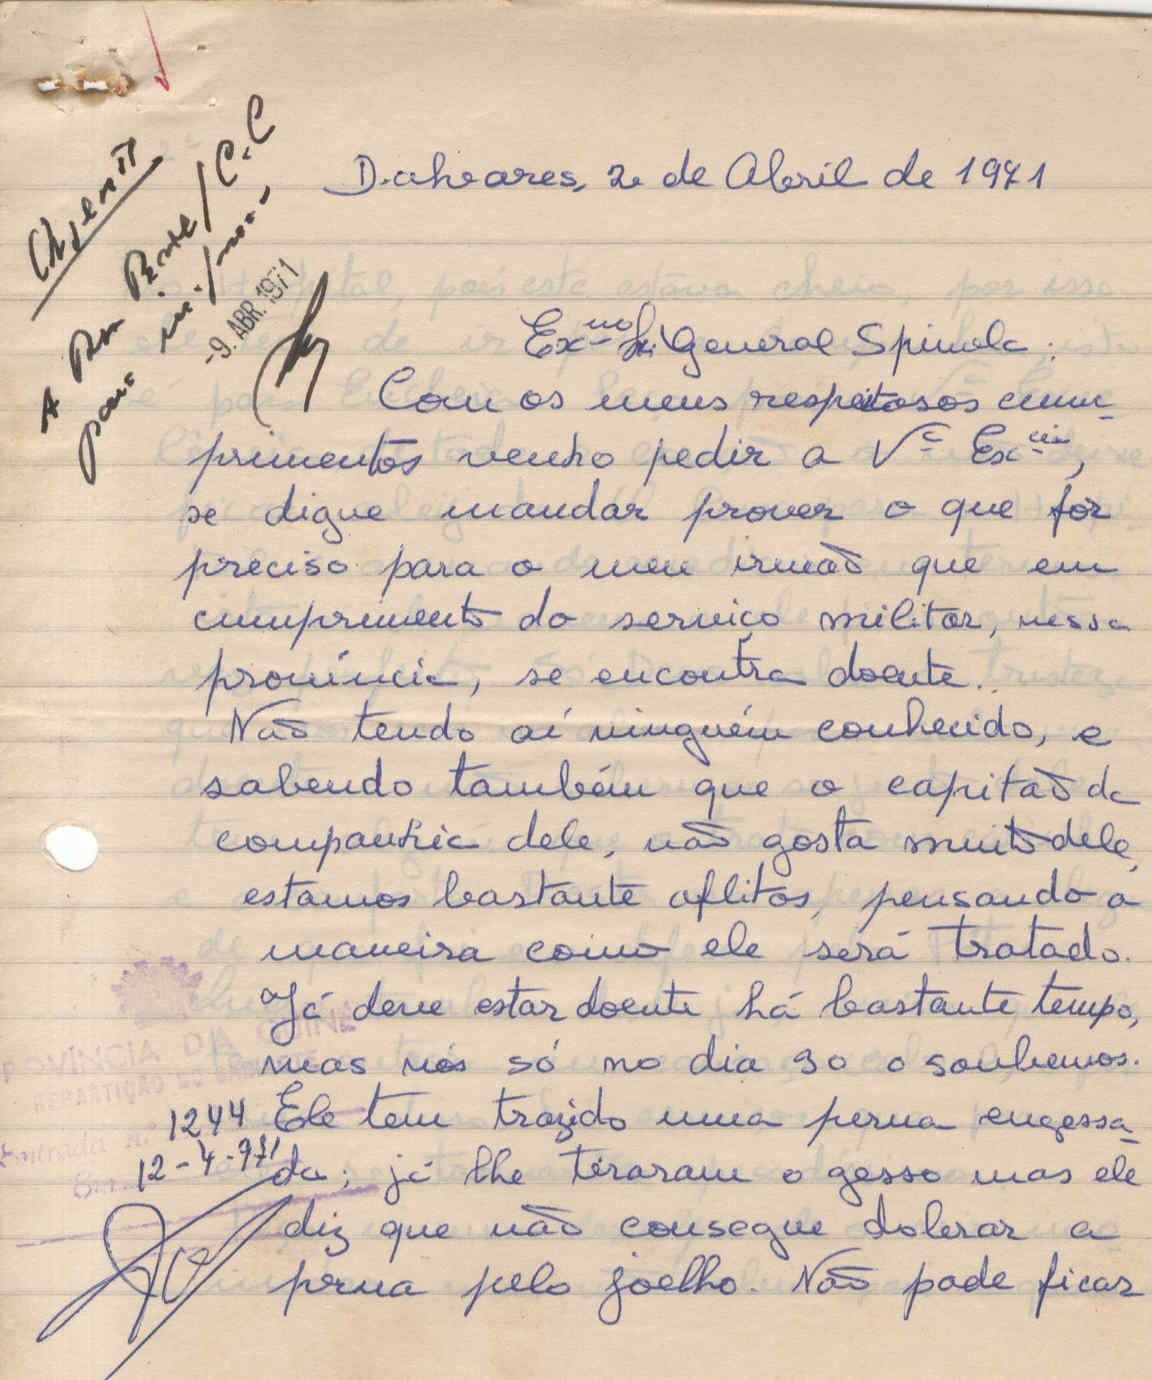 Urgente
A Rep. Gab. / C.C
para
-9. ABR. 1971
2 de Abril de 1971
Exmo Sr. General Spinola:
Com os meus respeitosos cum-
primentos venho pedir a Vª Excia,
se digne mandar prover o que for
preciso para o meu irmão que em
cumprimento do serviço militar, nessa
província, se encontra doente.
Não tendo aí ninguém conhecido, e
sabendo também que o capitão da
companhia dele, não gosta muito dele,
estamos bastante aflitos, pensando a
maneira como ele será tratado.
Já deve estar doente há bastante tempo,
mas nós só no dia 30 o soubemos.
Ele tem trazido uma perna engessa-
da; já lhe tiraram o gesso mas ele
diz que não consegue dobrar a
perna pelo joelho. Não pode ficar
PROVÍNCIA DA GUINÉ
REPARTIÇÃO DO GABINETE
Entrada n.º 1244
Em 12-4-971